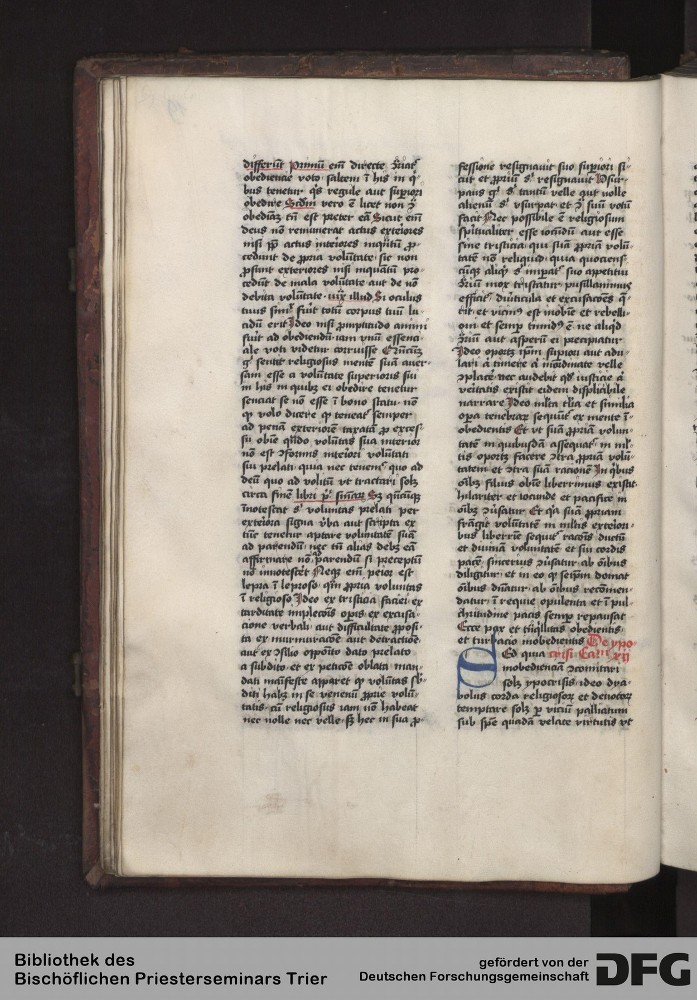 differūt Primū em̄ directe ꝯ̄riat᷑
obedientie voto saltem ī his in q̄
bus tenetur q̄s regule aut supiori
obedire Scd̄m vero ē licet non ꝯ̄
obediāꝫ tn̄ est preter eā Sicut em̄
deus nō remunerat actus exteriores
nisi ꝓ actus interiores inqn̄tū ꝓ
cedunt de ꝓpria volūtate sic non
ꝓsunt exteriores nisi inquātū pro
cedūt de mala volūtate aut de nō
debita volūtate iuxͣ illud Si oculus
tuus simꝉ fuit totū corpus tuū lu
cidū erit Ideo nisi ꝓmptitudo animi
fuit ad obediendū iam vnū essenci
ale voti videtur corruisse
gͦ sentit religiosus mentē suā auer
sam esse a volūtate superioris sui
in his in quibꝫ ei obedire tenetur
senciat se nō esse ī bono statu nō
ꝙ volo dicere ꝙ teneat᷑ semper
ad penā exteriorē taxatā ꝓ exces
su obīe qn̄do volūtas sua interior
nō est ꝯformis interiori volūtati
sui prelati quia nec tenem᷑ quo ad
deū quo ad volitū vt tractari solꝫ
circa finē libri pͥ sn̄iaꝝ Sꝫ qn̄cūqꝫ
īnotescat s᷑ voluntas prelati per
exteriora signa v̄ba aut scripta ex
tūc tenetur aptare voluntatē suā
ad parendū nec tn̄ alias debꝫ eā
affirmare nō ꝑarendū si preceptū
nō innotescēt Neqꝫ em̄ peior est
lepra ī leproso qm̄ ꝓpria voluntas
ī religioso Ideo ex tristicia faciei ex
tarditate implecōis opis ex excusa
cione verbali aut difficultate ꝓposi
ta ex murmuracōe aut detractiōe
aut ex ꝯsilio opposito dato prelato
a subdito et ex peticōe oblata man
dati māifeste apparet ꝙ volūtas sb̄
diti habꝫ in se venenū ꝓprie volū
tatis cū religiosus iam nō habeat
nec nolle nec velle sꝫ hec in sua ꝓ
fessione resignauit suo supiori si
cut et ꝓpriū s᷑ resignauit Vsur
pans gͦ s᷑ tantū velle aut nolle
alienū s᷑ vsurpat et ꝯ̄ suū votū
facit Nec possibile ē religiosum
spūaliter esse iocūdū aut esse
sine tristicia qui suā ꝓpriā volū
tatē nō reliquid quia quociens
cūqꝫ aliqͥd s᷑ inpat᷑ suo appetitui
ꝯ̄riū mox tristatur pusillanimis
efficit᷑ diuticula et excusacōes q̄
rit et vicinꝰ est mobilie et rebelli
oni et semp timidꝰ ē ne aliqͥd
ꝯ̄riū aut asperū ei precipiatur
Ideo oportꝫ ip̄m supiori aut adu
lari aut timere aut inordinate velle
ꝯplacē nec audebit qd̄ iusticie aut
veritatis existit eidem displicibile
narrare Ideo mlta tlia et similia
opa tenebraꝝ sequūt᷑ ex mente ī
obedientis Et vt suā ꝓpriam volun
tatē in quibusdā assequat᷑ in ml
tis oportꝫ facere ꝯtra ꝓpriā volū
tatem et ꝯtra suā racionē In qͥbus
oībꝫ filius obīe liberrimus existit
hilariter et iocunde et pacifice in
oībꝫ ꝯūsatur Et qͥa suā ꝓpriam
frāgit volūtatē in mltis exteriori
bus liberrīe sequit᷑ racōis ductū
et diuinā voluntatē et sui cordis
pacē sincerius ꝯūsatur ab oībus
diligitur et in eo ꝙ seip̄m domat
oībus dn̄atur ab oībus recōmen
datur ī requie opulenta et ī pul
chritudine pacis semp repausat
Ecce pax et trāqͥllitas obedientis
et turbacio inobedientis De ypo
Sed quia crisi Caꝉm XII
inobedienciā ꝯcomitari
solꝫ ypocrisis ideo dya
bolus corda religiosoꝝ et deuotoꝝ
temptare solꝫ ꝑ viciū palliatum
sub spē quadā velate virtutis vt
Bibliothek des
Bischöflichen Priesterseminars Trier
gefördert von der
Deutschen Forschungsgemeinschaft DFG